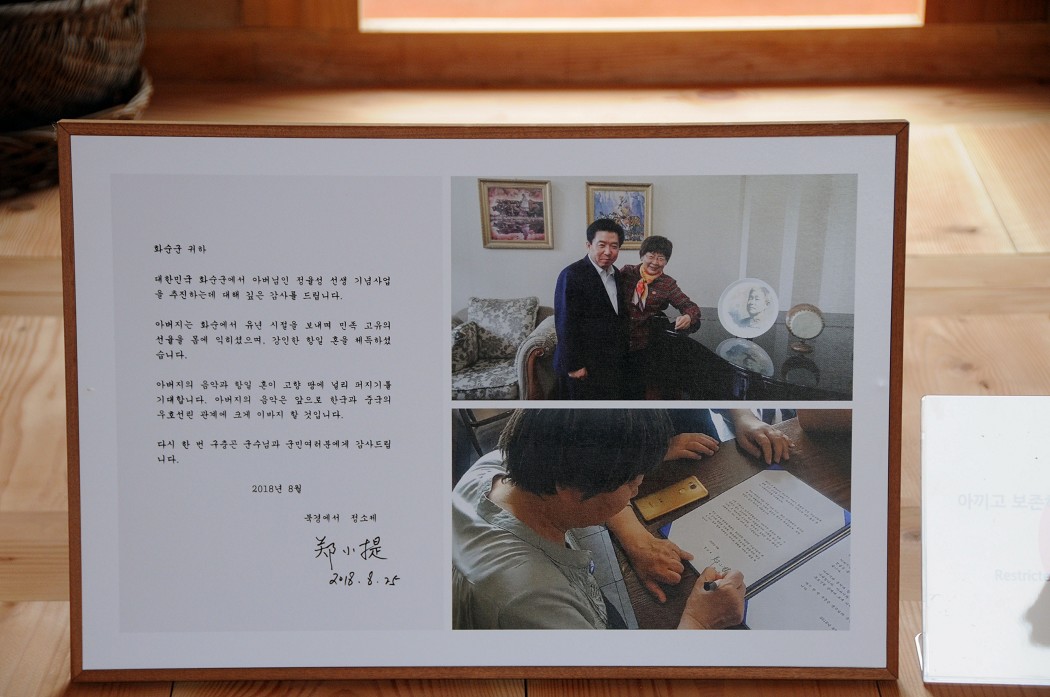 화순군 귀하
대한민국 화순군에서 아버님인 정율성 선생 기념사업
을 추진하는데 대해 깊은 감사를 드립니다.
아버지는 화순에서 유년 시절을 보내며 민족 고유의
선율을 몸에 익히셨으며, 강인한 항일 혼을 체득하셨
습니다.
아버지의 음악과 항일 혼이 고향 땅에 널리 퍼지기를
기대합니다. 아버지의 음악은 앞으로 한국과 중국의
우호선린 관계에 크게 이바지 할 것입니다.
다시 한 번 구충곤 군수님과 군민여러분에게 감사드립
니다.
2018년 8월
북경에서 정소제
郑小提
2018.8.25
아끼고 보존
Restrict